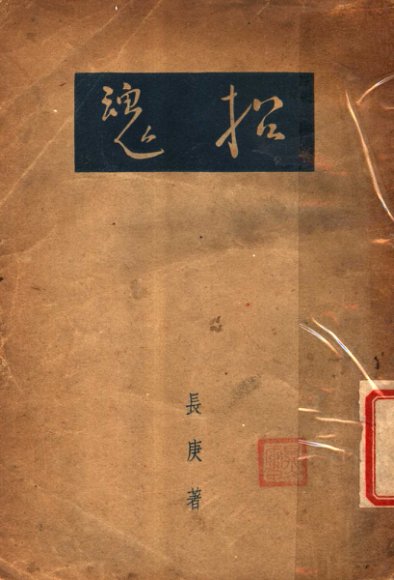 招魂
長庚著